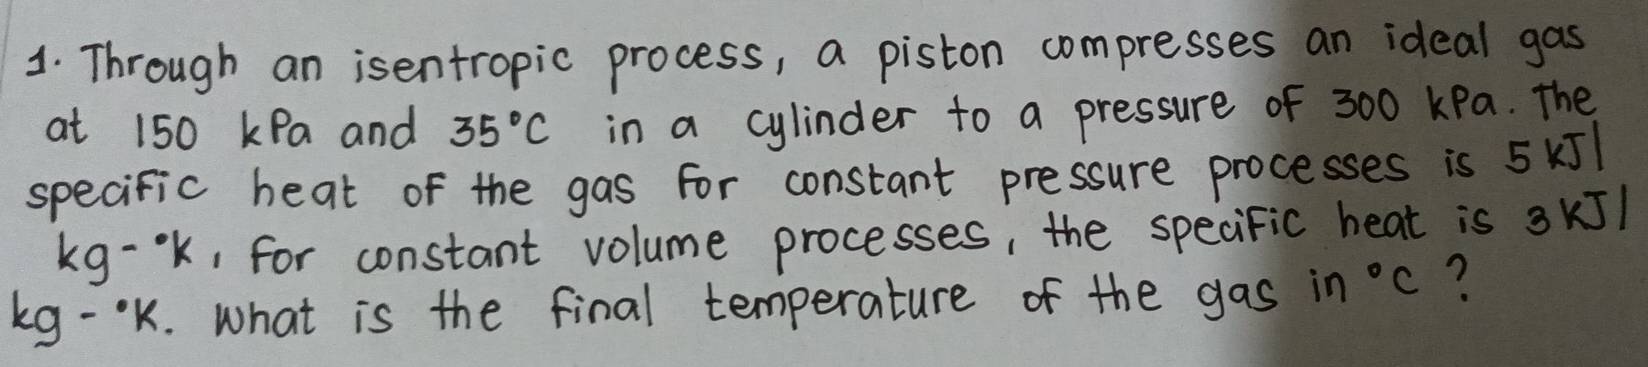 1. Through an isentropic process, a piston compresses an ideal gas
at 150 kPa and 35°C in a cylinder to a pressure of 300 kPa. The
specific heat of the gas for constant pressure processes is 5 kJ/
kg-°K, for constant volume processes, the specific heat is 3 kJ/
kg-°K. What is the final temperature of the gas in °C ?